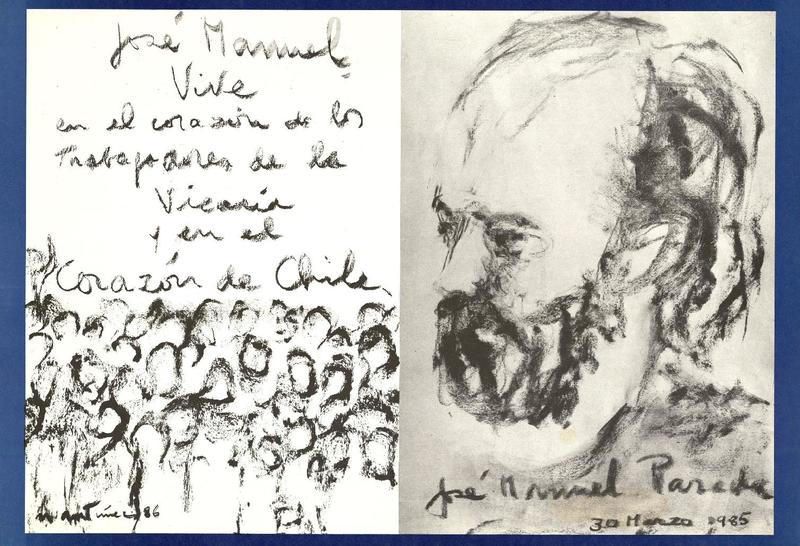 José Manuel
Vive
en el corazón de los
Trabajadores de la
Vicaría
y en el
Corazón de Chile
86
José Manuel Parada
30 Marzo 1985